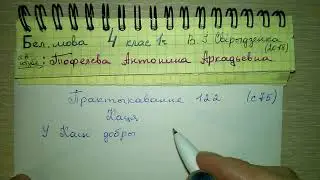 Бел. мова 4 клас 1ч. В. І. Свірыдзенка
(2018)
Тофелева Антонина Аркадьевна
Практыкаванне 122 (с 75)
Каця
У Каці добры